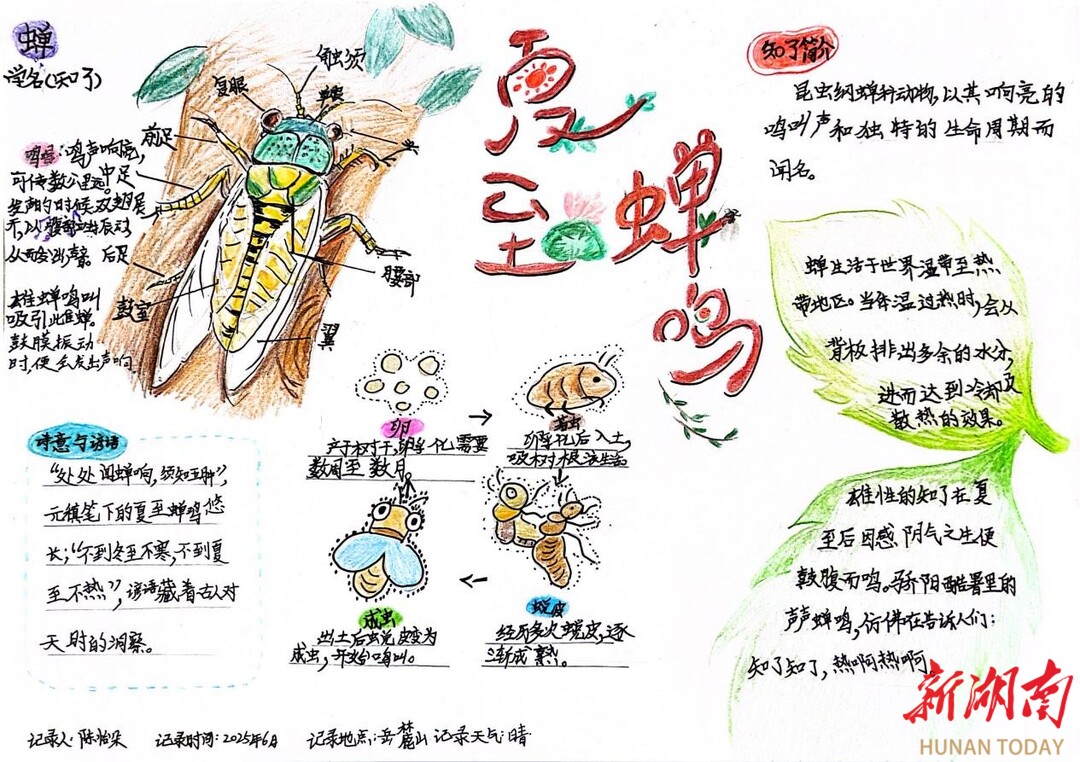 蝉
学名(知了)
复眼
触须
单眼
前足
头
中足
后足
鼓室
腹部
翼
鸣叫:鸣声响亮,
可传数公里远。
发声的时候双翅展
开,以腹部
从而会出声。
雄蝉鸣叫
吸引此雌蝉。
鼓膜振动
时便会发出声响
夏至蝉鸣
知了简介
昆虫纲蝉科动物,以其响亮的
鸣叫声和独特的生命周期而
闻名。
蝉生活于世界温带至热
带地区。当体温过热时,会从
背板排出多余的水分,
进而达到冷却及
散热的效果。
雄性的知了在夏
至后因感阴气之生便
鼓腹而鸣。骄阳酷暑里的
声声蝉鸣,仿佛在告诉人们:
知了知了,热啊热啊。
卵
产于树干,卵孵化需要
数周至数月。
若虫
卵孵化后入土,
吸树根汁生活
蜕皮
经历多次蜕皮,逐
渐成熟。
成虫
出土后蜕皮变为
成虫,开始鸣叫。
诗意与谚语
“处处闻蝉响,须知五月中”,
元稹笔下的夏至蝉鸣悠
长;“不到冬至不寒,不到夏
至不热”,谚语藏着古人对
天时的洞察。
记录人:陈怡朵 记录时间:2025年6月 记录地点:岳麓山 记录天气:晴
新湖南
HUNAN TODAY